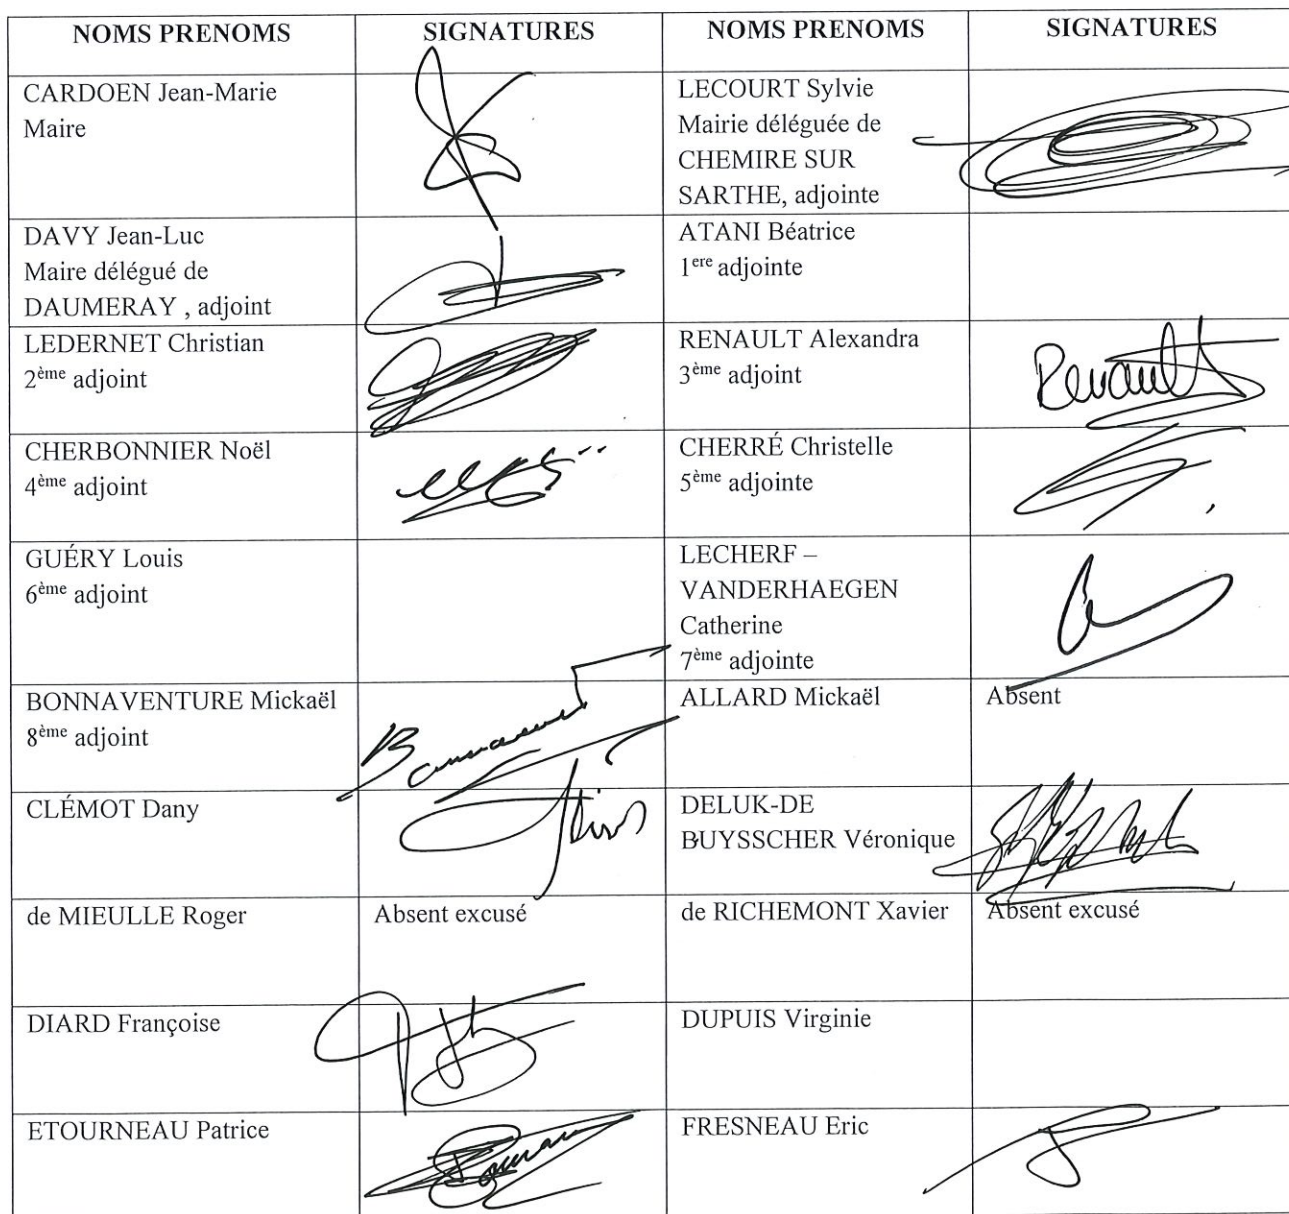 NOMS PRENOMS SIGNATURES NOMS PRENOMS SIGNATURES
CARDOEN Jean-Marie
Maire
LECOURT Sylvie
Mairie déléguée de
CHEMIRE SUR
SARTHE, adjointe
DAVY Jean-Luc
Maire délégué de
DAUMERAY , adjoint
ATANI Béatrice
1ere adjointe
LEDERNET Christian
2ème adjoint
RENAULT Alexandra
3ème adjoint
Renault
CHERBONNIER Noël
4ème adjoint
CHERRÉ Christelle
5ème adjointe
GUÉRY Louis
6ème adjoint
LECHERF –
VANDERHAEGEN
Catherine
7ème adjointe
BONNAVENTURE Mickaël
8ème adjoint
ALLARD Mickaël
Absent
CLÉMOT Dany
DELUK-DE
BUYSSCHER Véronique
de MIEULLE Roger
Absent excusé
de RICHEMONT Xavier
Absent excusé
DIARD Françoise
DUPUIS Virginie
ETOURNEAU Patrice
FRESNEAU Eric